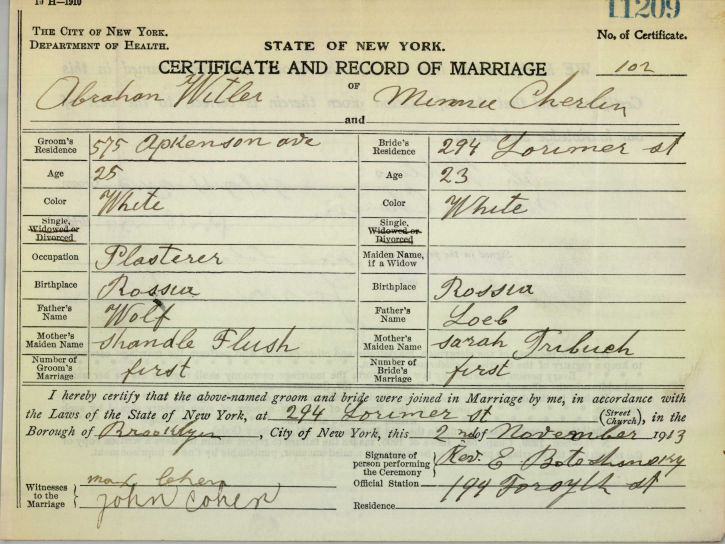 19 H—1910
11209
THE CITY OF NEW YORK.
DEPARTMENT OF HEALTH.
STATE OF NEW YORK.
No. of Certificate.
CERTIFICATE AND RECORD OF MARRIAGE
102
OF
Abraham Witler and Minnie Cherlin
Groom's Residence 575 Apkenson ave Bride's Residence 294 Lorimer st
Age 25 Age 23
Color White Color White
Single, Widowed or Divorced Single, Widowed or Divorced
Occupation Plasterer Maiden Name, if a Widow
Birthplace Rossia Birthplace Rossia
Father's Name Wolf Father's Name Loeb
Mother's Maiden Name Shandle Flush Mother's Maiden Name Sarah Tribuch
Number of Groom's Marriage first Number of Bride's Marriage first
I hereby certify that the above-named groom and bride were joined in Marriage by me, in accordance with
the Laws of the State of New York, at 294 Lorimer st (Street Church), in the
Borough of Brooklyn, City of New York, this 2nd of November 1913
Signature of person performing the Ceremony Rev. E
Official Station 194 Forsyth st
Witnesses to the Marriage Max Cohen
John Cohen
Residence